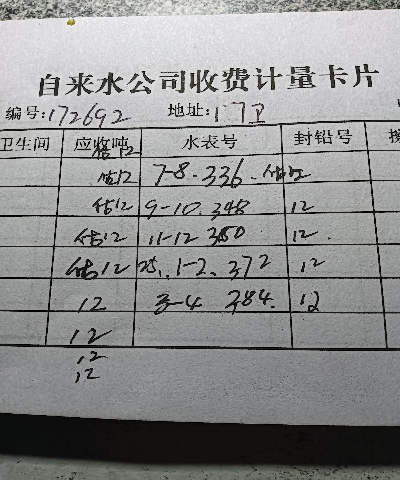 自来水公司收费计量卡片
编号:172692 地址:门卫
卫生间 应收吨 水表号 封铅号
估12
估12 7-8.336. 估12
估12 9-10.348 12
估12 11-12 360 12.
估12 25.1-2.372 12
12 3-4 384. 12
12
12
12